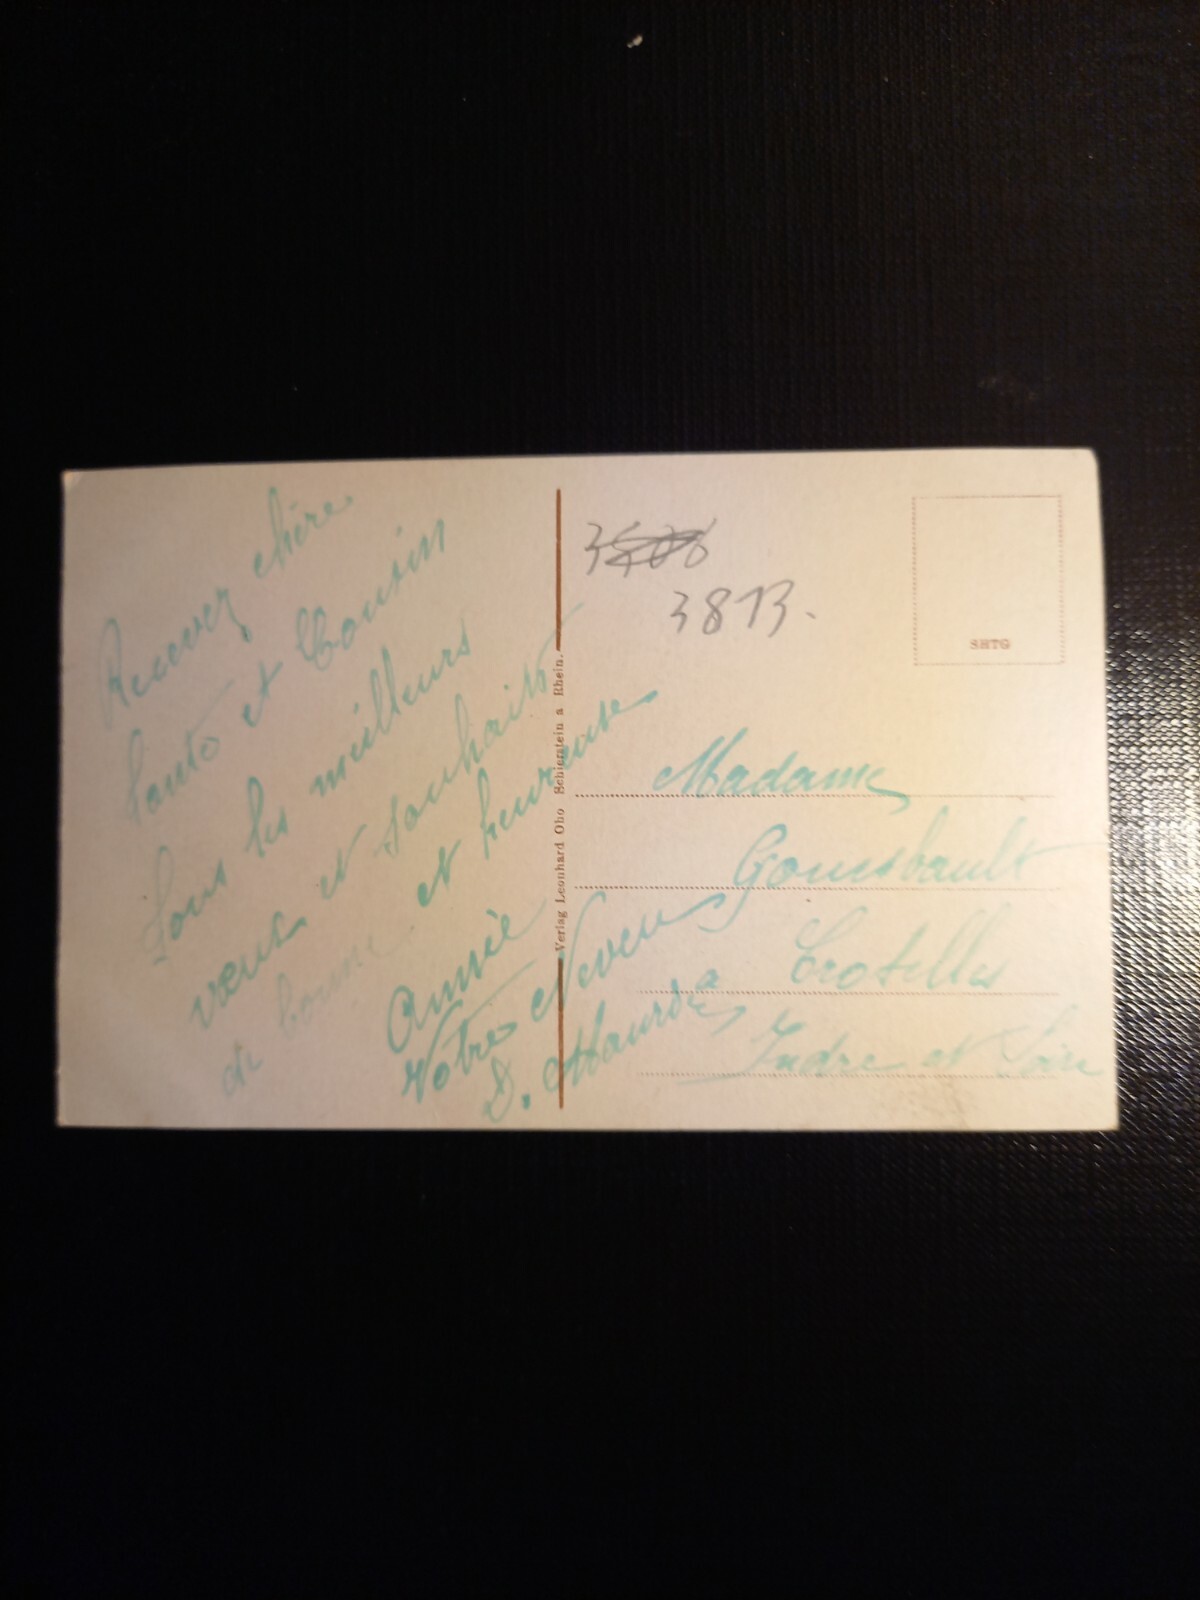 Recevez chère
tante et Cousin
tous les meilleurs
vœux et souhaits
de bonne et heureuse
Année
Votre Neveu
D. Maurice
Verlag Leonhard Oho Schierstein a Rhein.
3813.
SHTG
Madame
à Crotelles
Indre et Loire